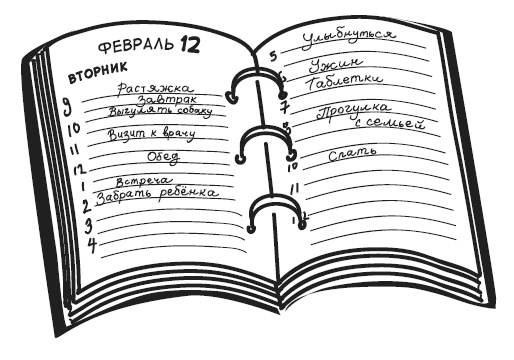 ФЕВРАЛЬ 12
ВТОРНИК
Растяжка
9 Завтрак
Выгулять собаку
10
Визит к врачу
11
Обед
12
1 Встреча
2 Забрать ребёнка
3
4
5 Улыбнуться
6 Ужин
Таблетки
7
Прогулка
8 с семьей
10 Спать
11
12